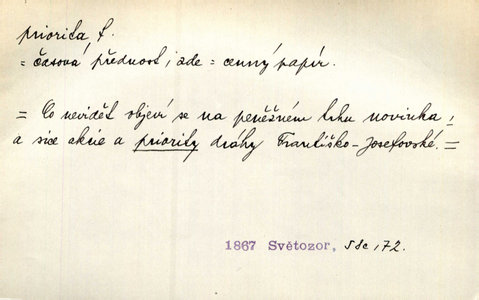 priorita f.
= časová přednost; zde = cenný papír.
= Co nevidět objeví se na peněžném trhu novinka;
a sice akcie a priority dráhy Františko-Josefovské. =
1867 Světozor, 172.